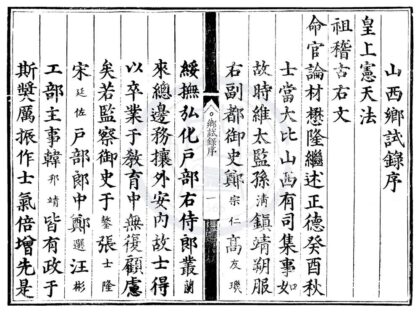 山西鄉試錄序
皇上憲天法
祖稽古右文
命官論材懋隆繼述正德癸酉秋
士當大比山西有司集事如
故時維太監孫清鎮靖朔服
右副都御史鄭宗仁高友璣
鄉試錄序
一
綏撫弘化戶部右侍郎叢蘭
來總邊務攘外安內故士得
以卒業于教育中無復顧慮
矣若監察御史于鏊張士隆
宋廷佐戶部郎中鄭選汪彬
工部主事韓邦靖皆有政于
斯奬厲振作士氣倍增先是